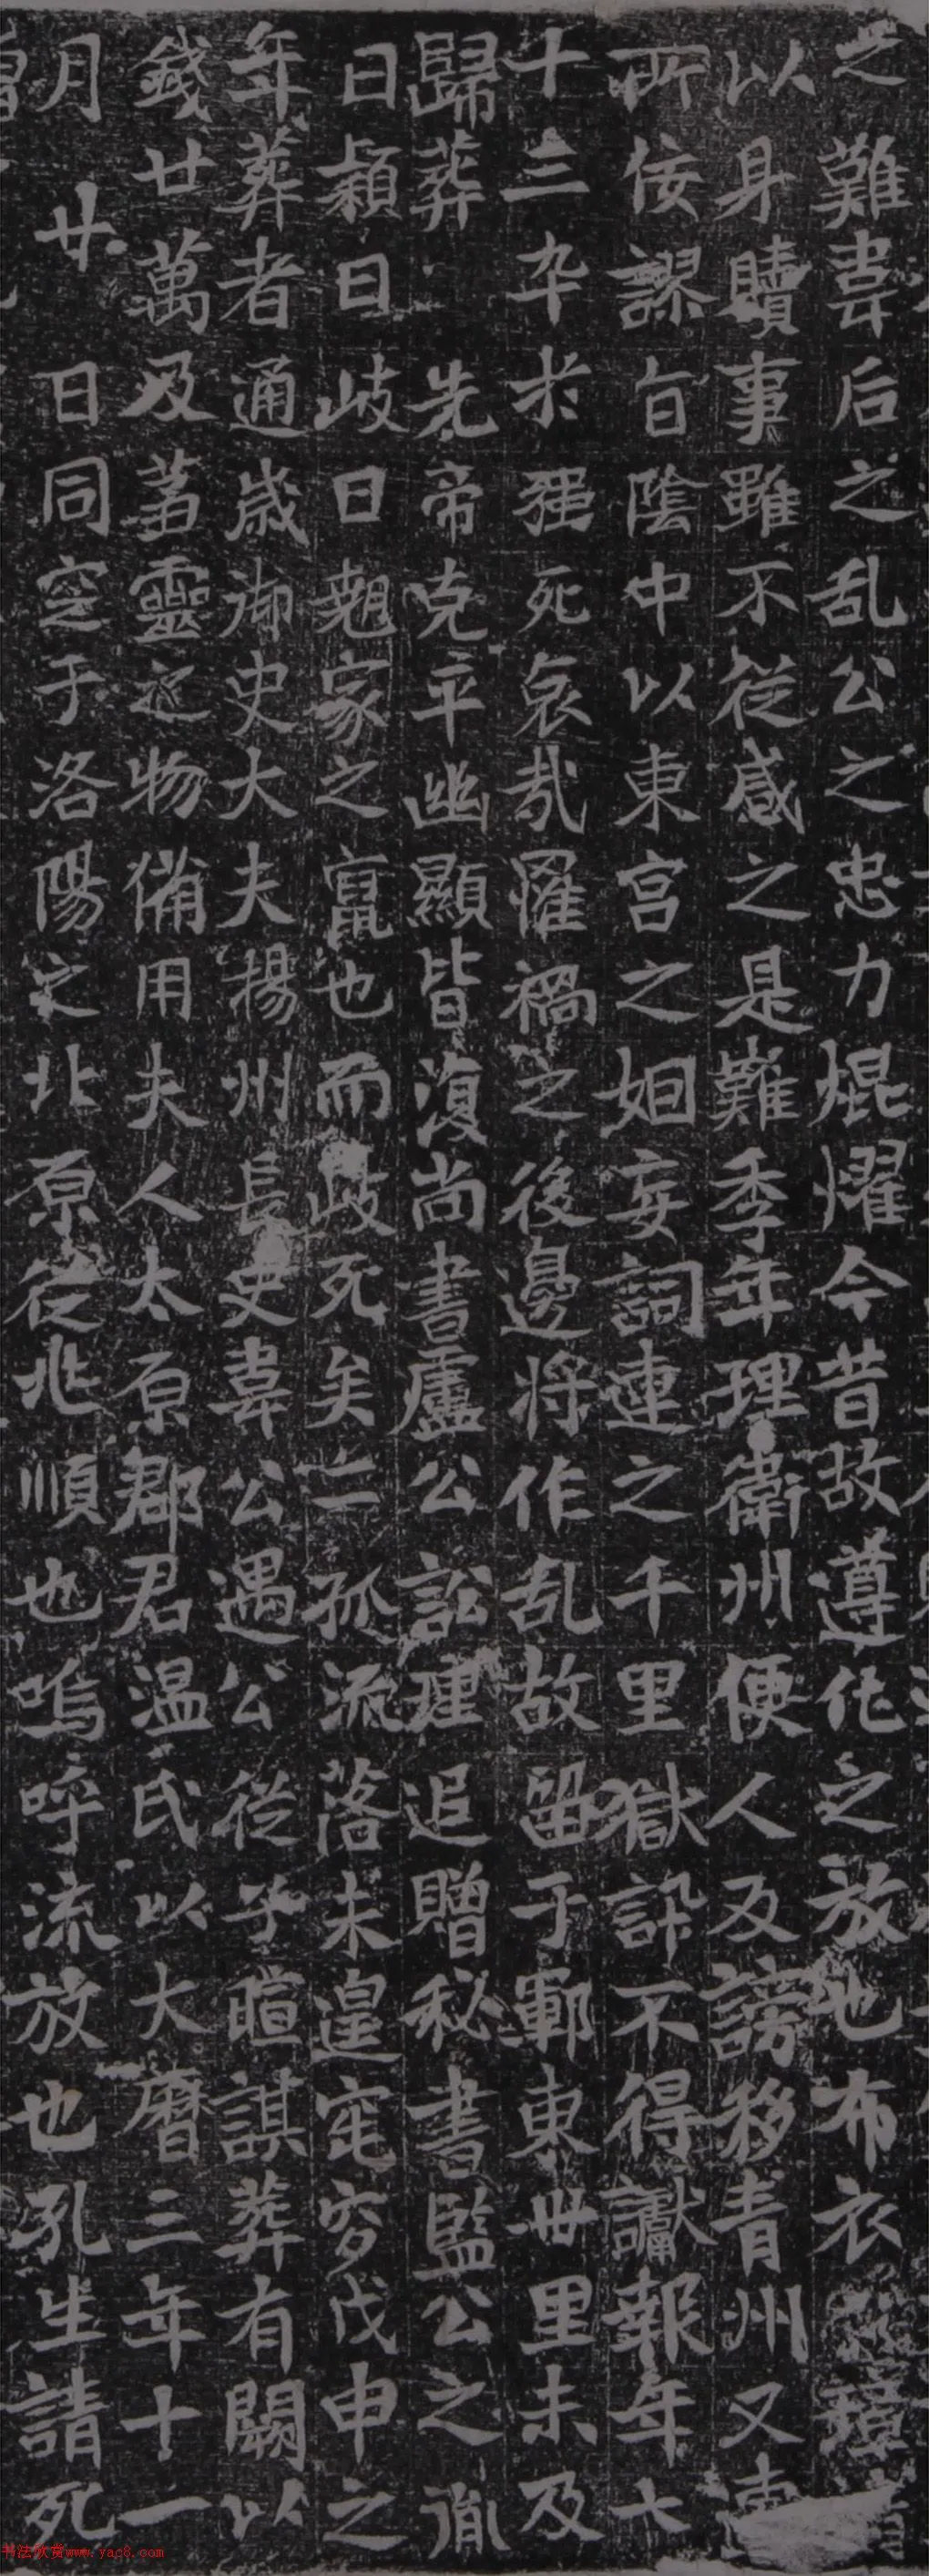 之難韋后之乱公之忠力焜燿今昔故遵化之放也布衣
以身贖事雖不從感之是難季年理衛州便人及謗移青州又
所佞謬旨陰中以東宫之姻妄詞連之千里獄訴不得讞報年六
十三卒求强死哀哉罹禍之後邊将作乱故留于鄆東卅里未及
歸葬先帝克平幽顯皆復尚書盧公訟理追贈秘書監公之
日潁日岐日魁家之寶也而岐死矣二孤流落未遑窀穸戊申之
年葬者通歲御史大夫揚州長史韋公遇公從子暄謀葬有闕以
錢廿萬及蒭靈之物備用夫人太原郡君温氏以大曆三年十一
月廿日同窆于洛陽之北原從兆順也嗚呼流放也孔生請死
书法欣赏www.yac8.com